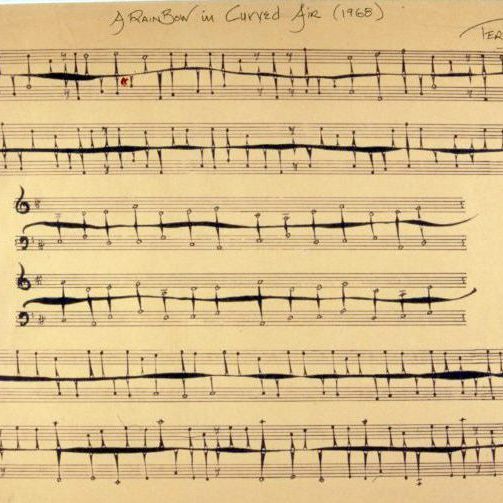 A RAINBOW in Curved Air (1968)
TER